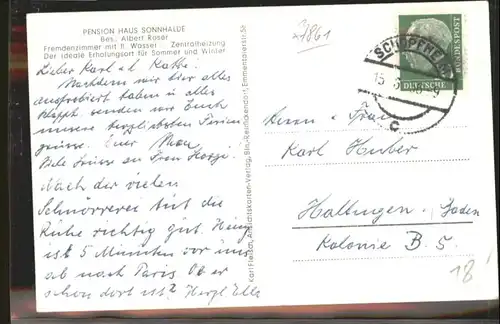 PENSION HAUS SONNHALDE
Bes.: Albert Roser
Fremdenzimmer mit fl. Wasser Zentralheizung
Der ideale Erholungsort für Sommer und Winter
Lieber Karl u. Käthi!
Nachdem wir hier alles
ausprobiert haben u. alles
klappt senden wir Euch
unsere herzlichsten Ferien
grüsse. Eure
Viele Grüsse an Frau
Nach der vielen
Schnörrerei tut die
Ruhe richtig gut.
ist 5 Minuten vor uns
ab nach Paris Ob er
schon dort ist? Herzl.
Karl Friesch, Ansichtskarten-Verlag, Bln.-Reinickendorf, Emmentalerstr. 58
27861
SCHOPFHEIM
15
c
DEUTSCHE
BUNDESPOST
Herrn u. Frau
Karl Huber
Haltingen, Baden
Kolonie B. 5.
18'